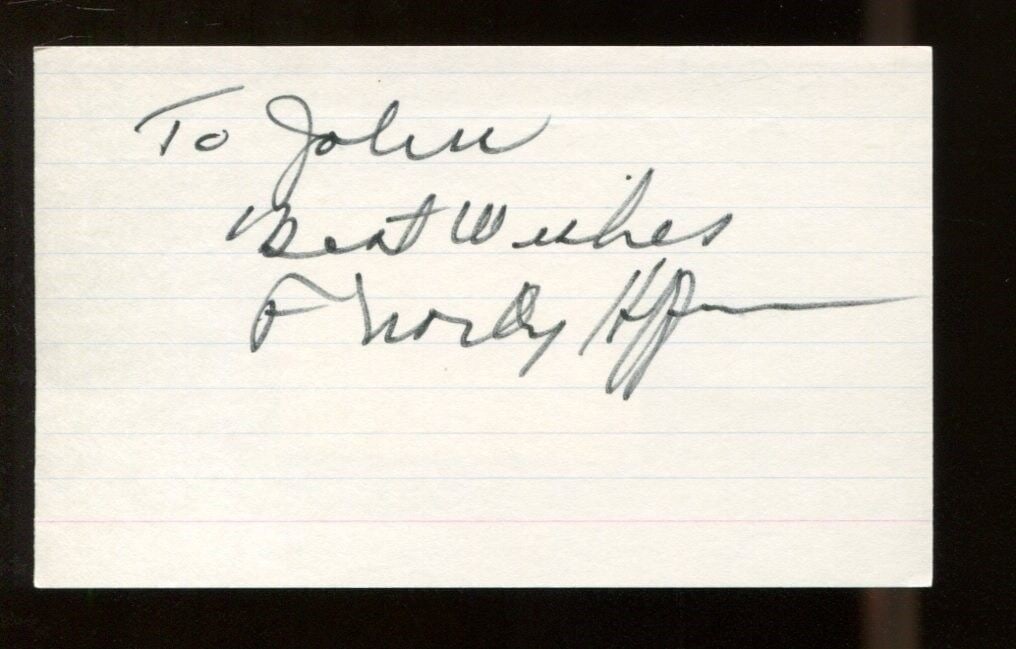 To John
Best Wishes
F Nordy Hoffmann